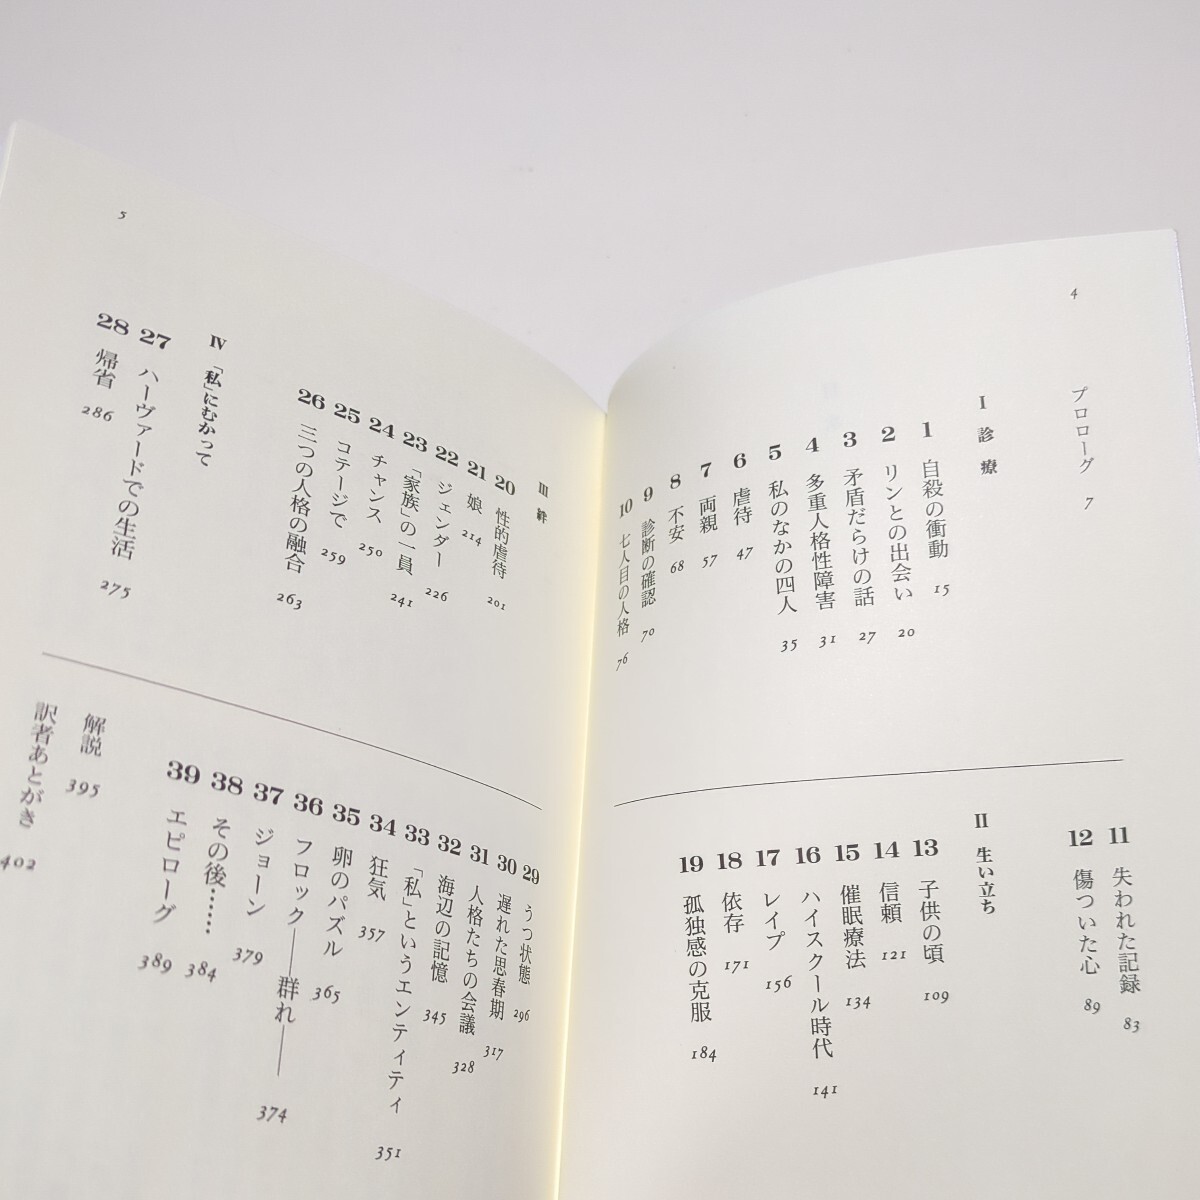 4
プロローグ 7
I 診療
1 自殺の衝動 15
2 リンとの出会い 20
3 矛盾だらけの話 27
4 多重人格性障害 31
5 私のなかの四人 35
6 虐待 47
7 両親 57
8 不安 68
9 診断の確認 70
10 七人目の人格 76
11 失われた記録 83
12 傷ついた心 89
II 生い立ち
13 子供の頃 109
14 信頼 121
15 催眠療法 134
16 ハイスクール時代 141
17 レイプ 156
18 依存 171
19 孤独感の克服 184
5
III 絆
20 性的虐待 201
21 娘 214
22 ジェンダー 226
23 「家族」の一員 241
24 チャンス 250
25 コテージで 259
26 三つの人格の融合 263
IV 「私」にむかって
27 ハーヴァードでの生活 275
28 帰省 286
29 うつ状態 296
30 遅れた思春期 317
31 人格たちの会議 328
32 海辺の記憶 345
33 「私」というエンティティ 351
34 狂気 357
35 卵のパズル 365
36 フロック――群れ―― 374
37 ジョーン 379
38 その後…… 384
39 エピローグ 389
解説 395
訳者あとがき 402